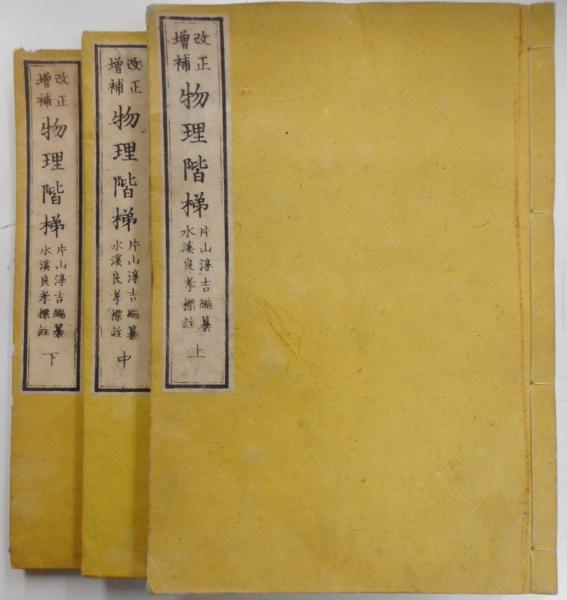 改正
增補
物理階梯
片山淳吉編纂
水溪良孝標註
上
改正
增補
物理階梯
片山淳吉編纂
水溪良孝標註
中
改正
增補
物理階梯
片山淳吉編纂
水溪良孝標註
下